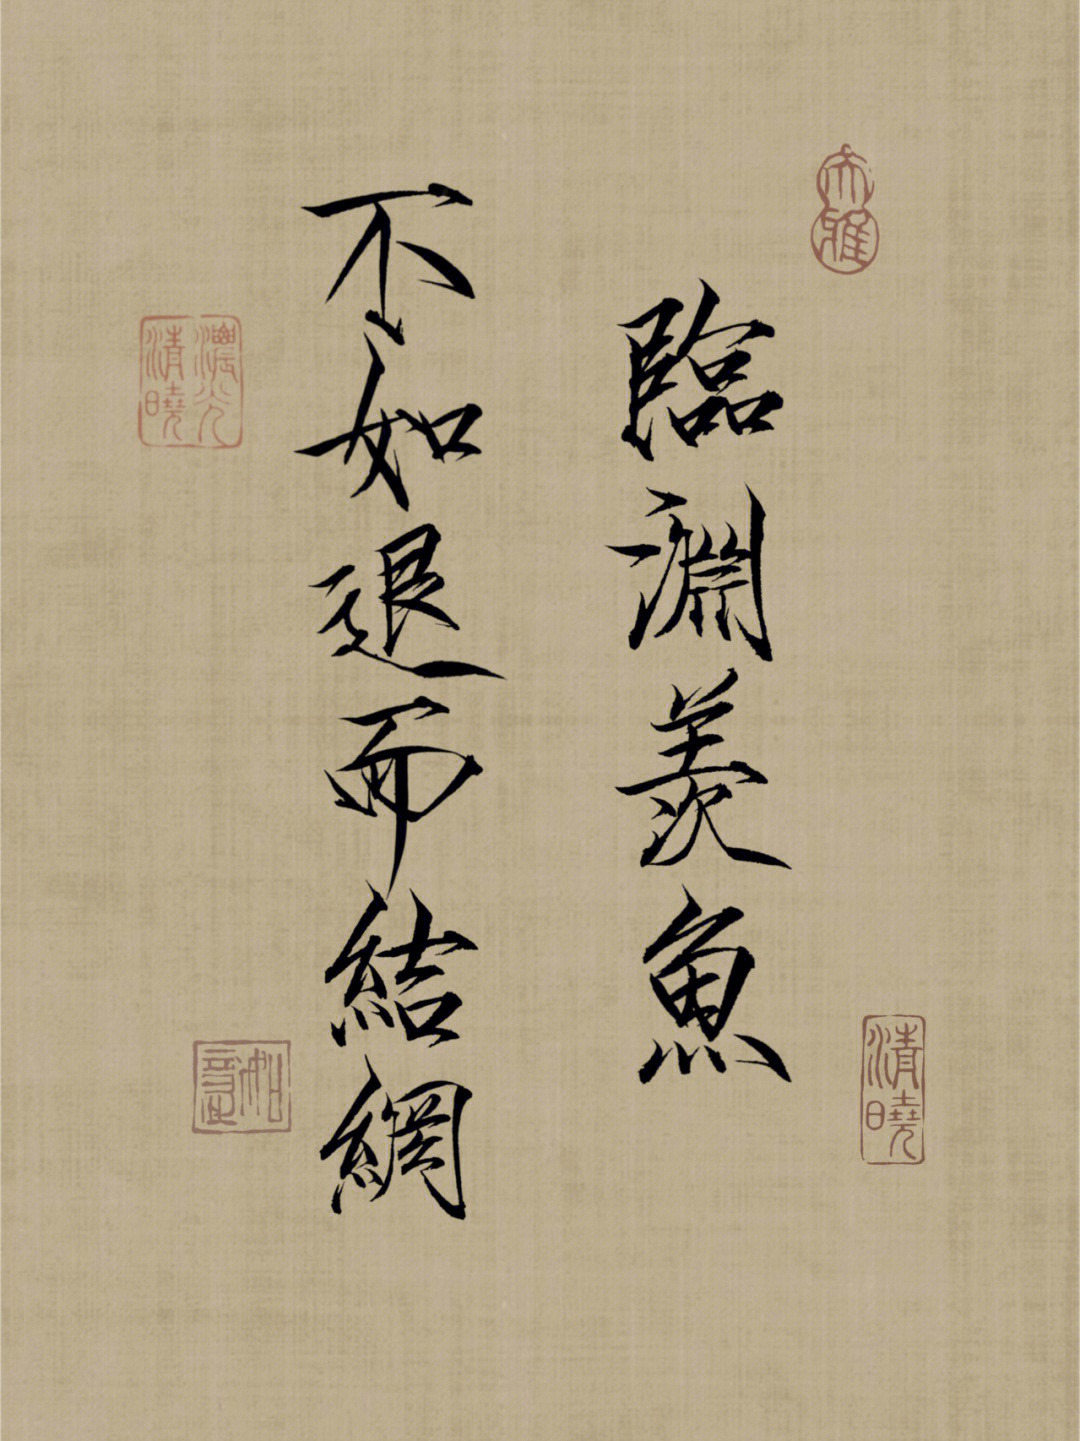 大雅
臨淵羨魚
清曉
不如退而結網
濃光
清曉
如意